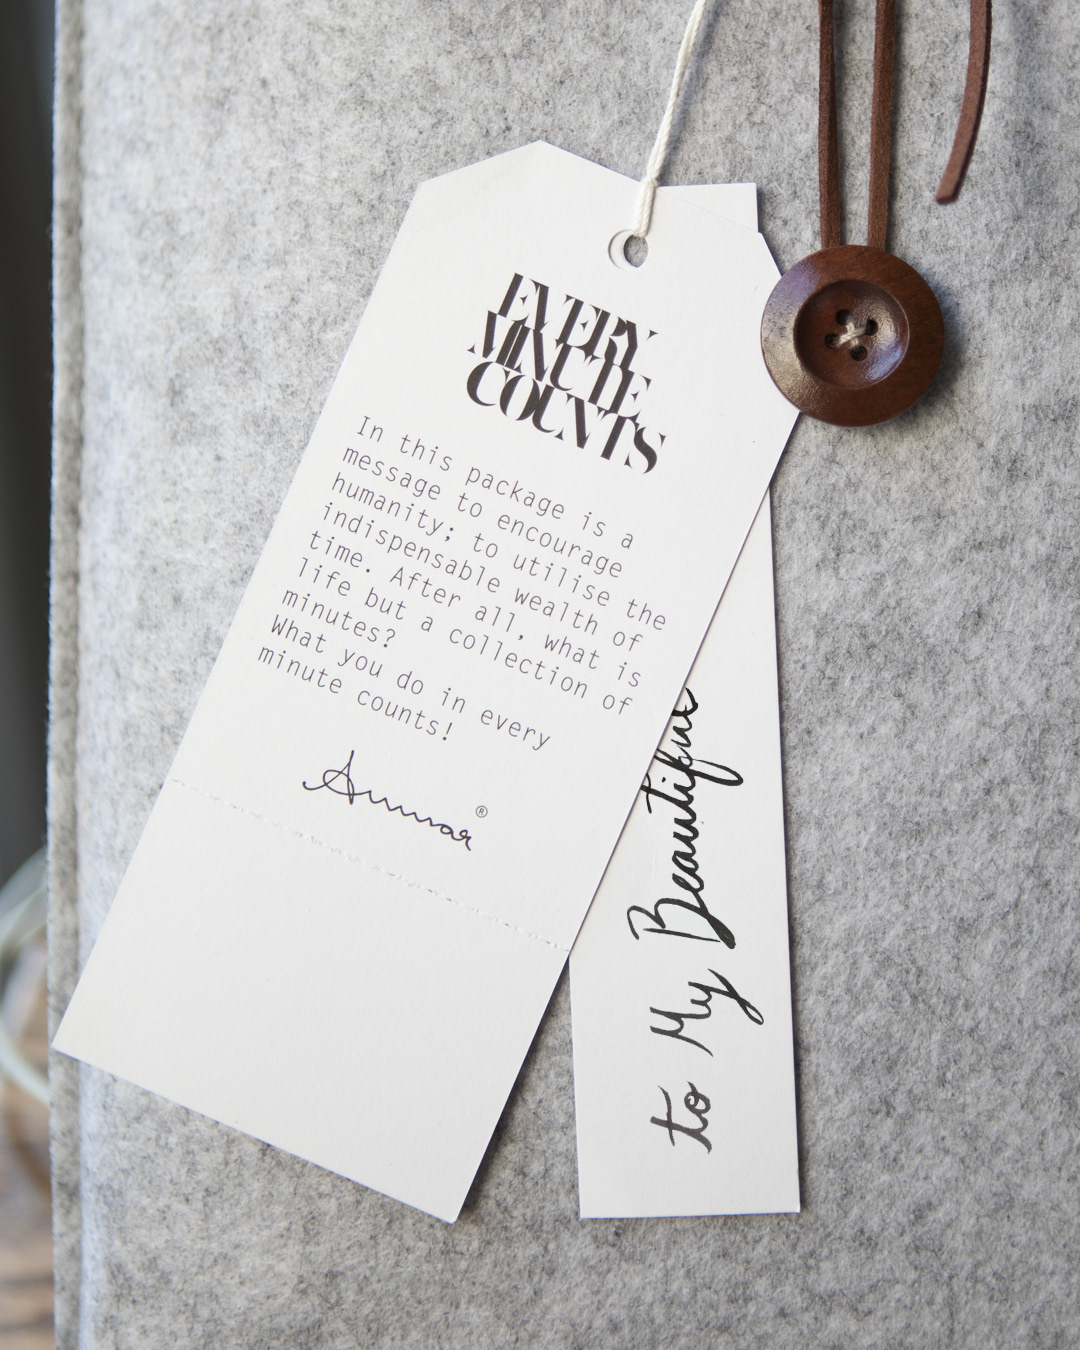 EVERY
MINUTE
COUNTS
In this package is a
message to encourage
humanity; to utilise the
indispensable wealth of
time. After all, what is
life but a collection of
minutes?
What you do in every
minute counts!
®
to My Beautiful